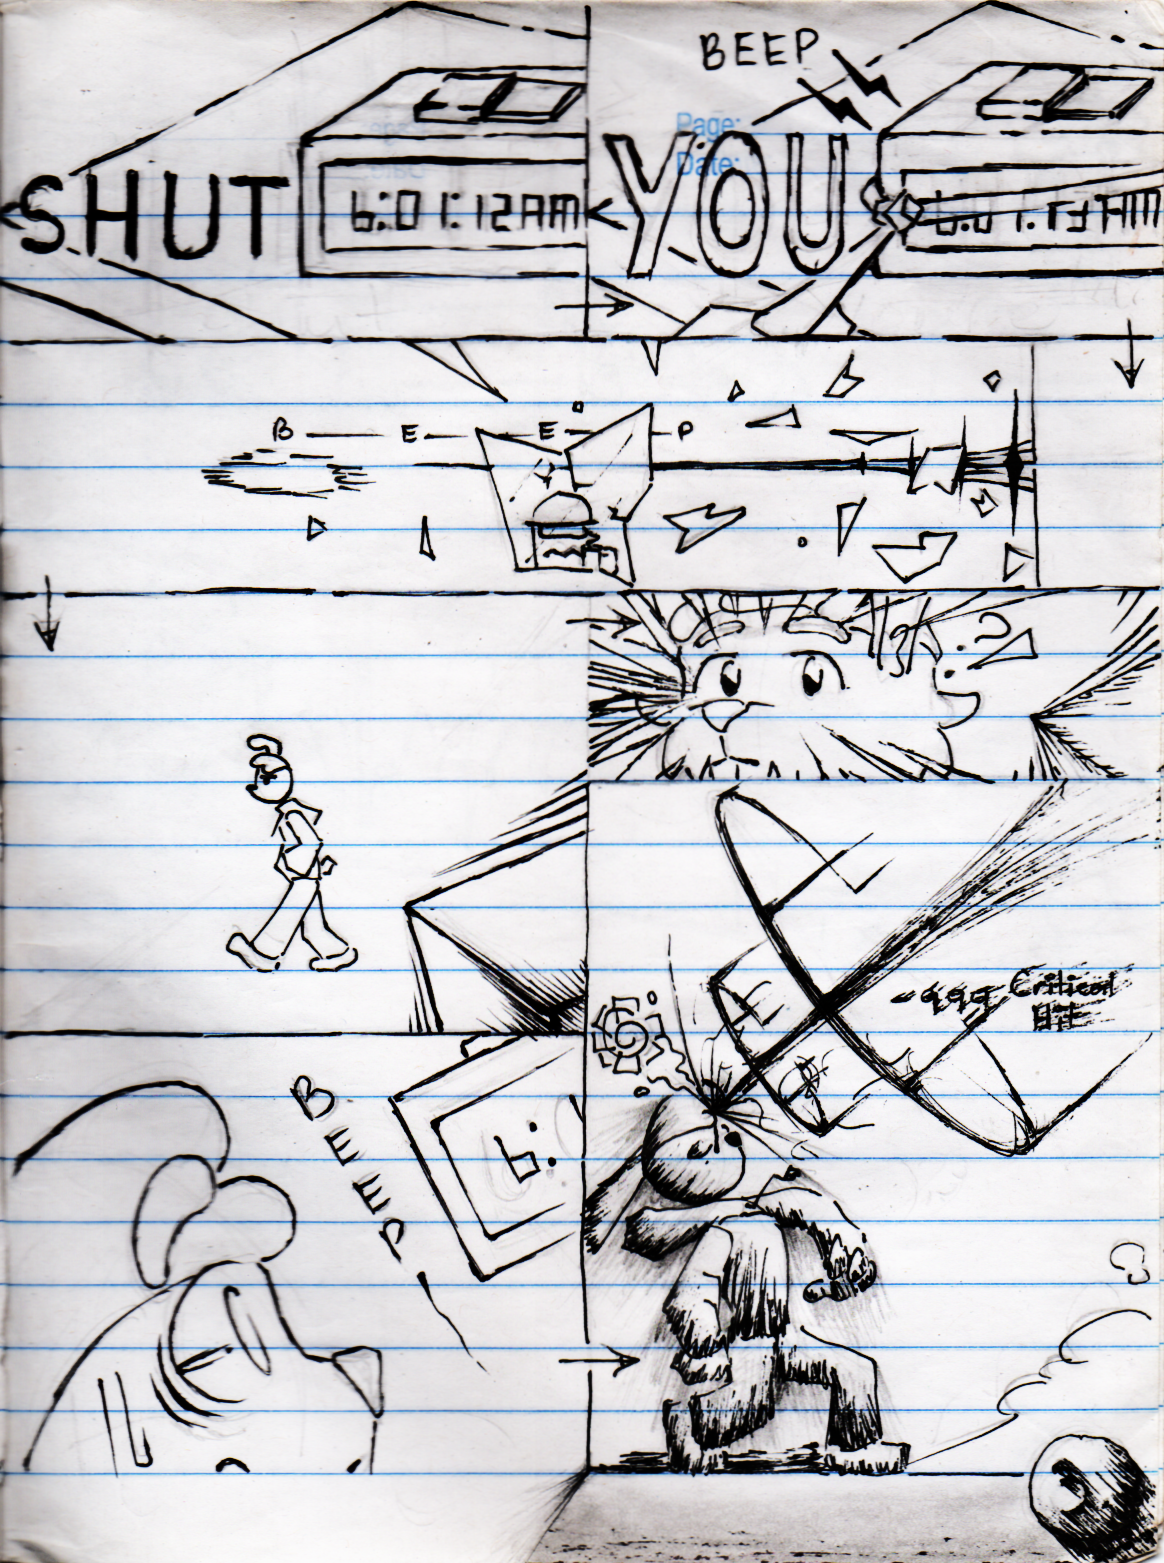 SHUT
6:01:12AM
BEEP
Page:
Date:
YOU
B E E P
?
Critical
Hit
BEEP
6: